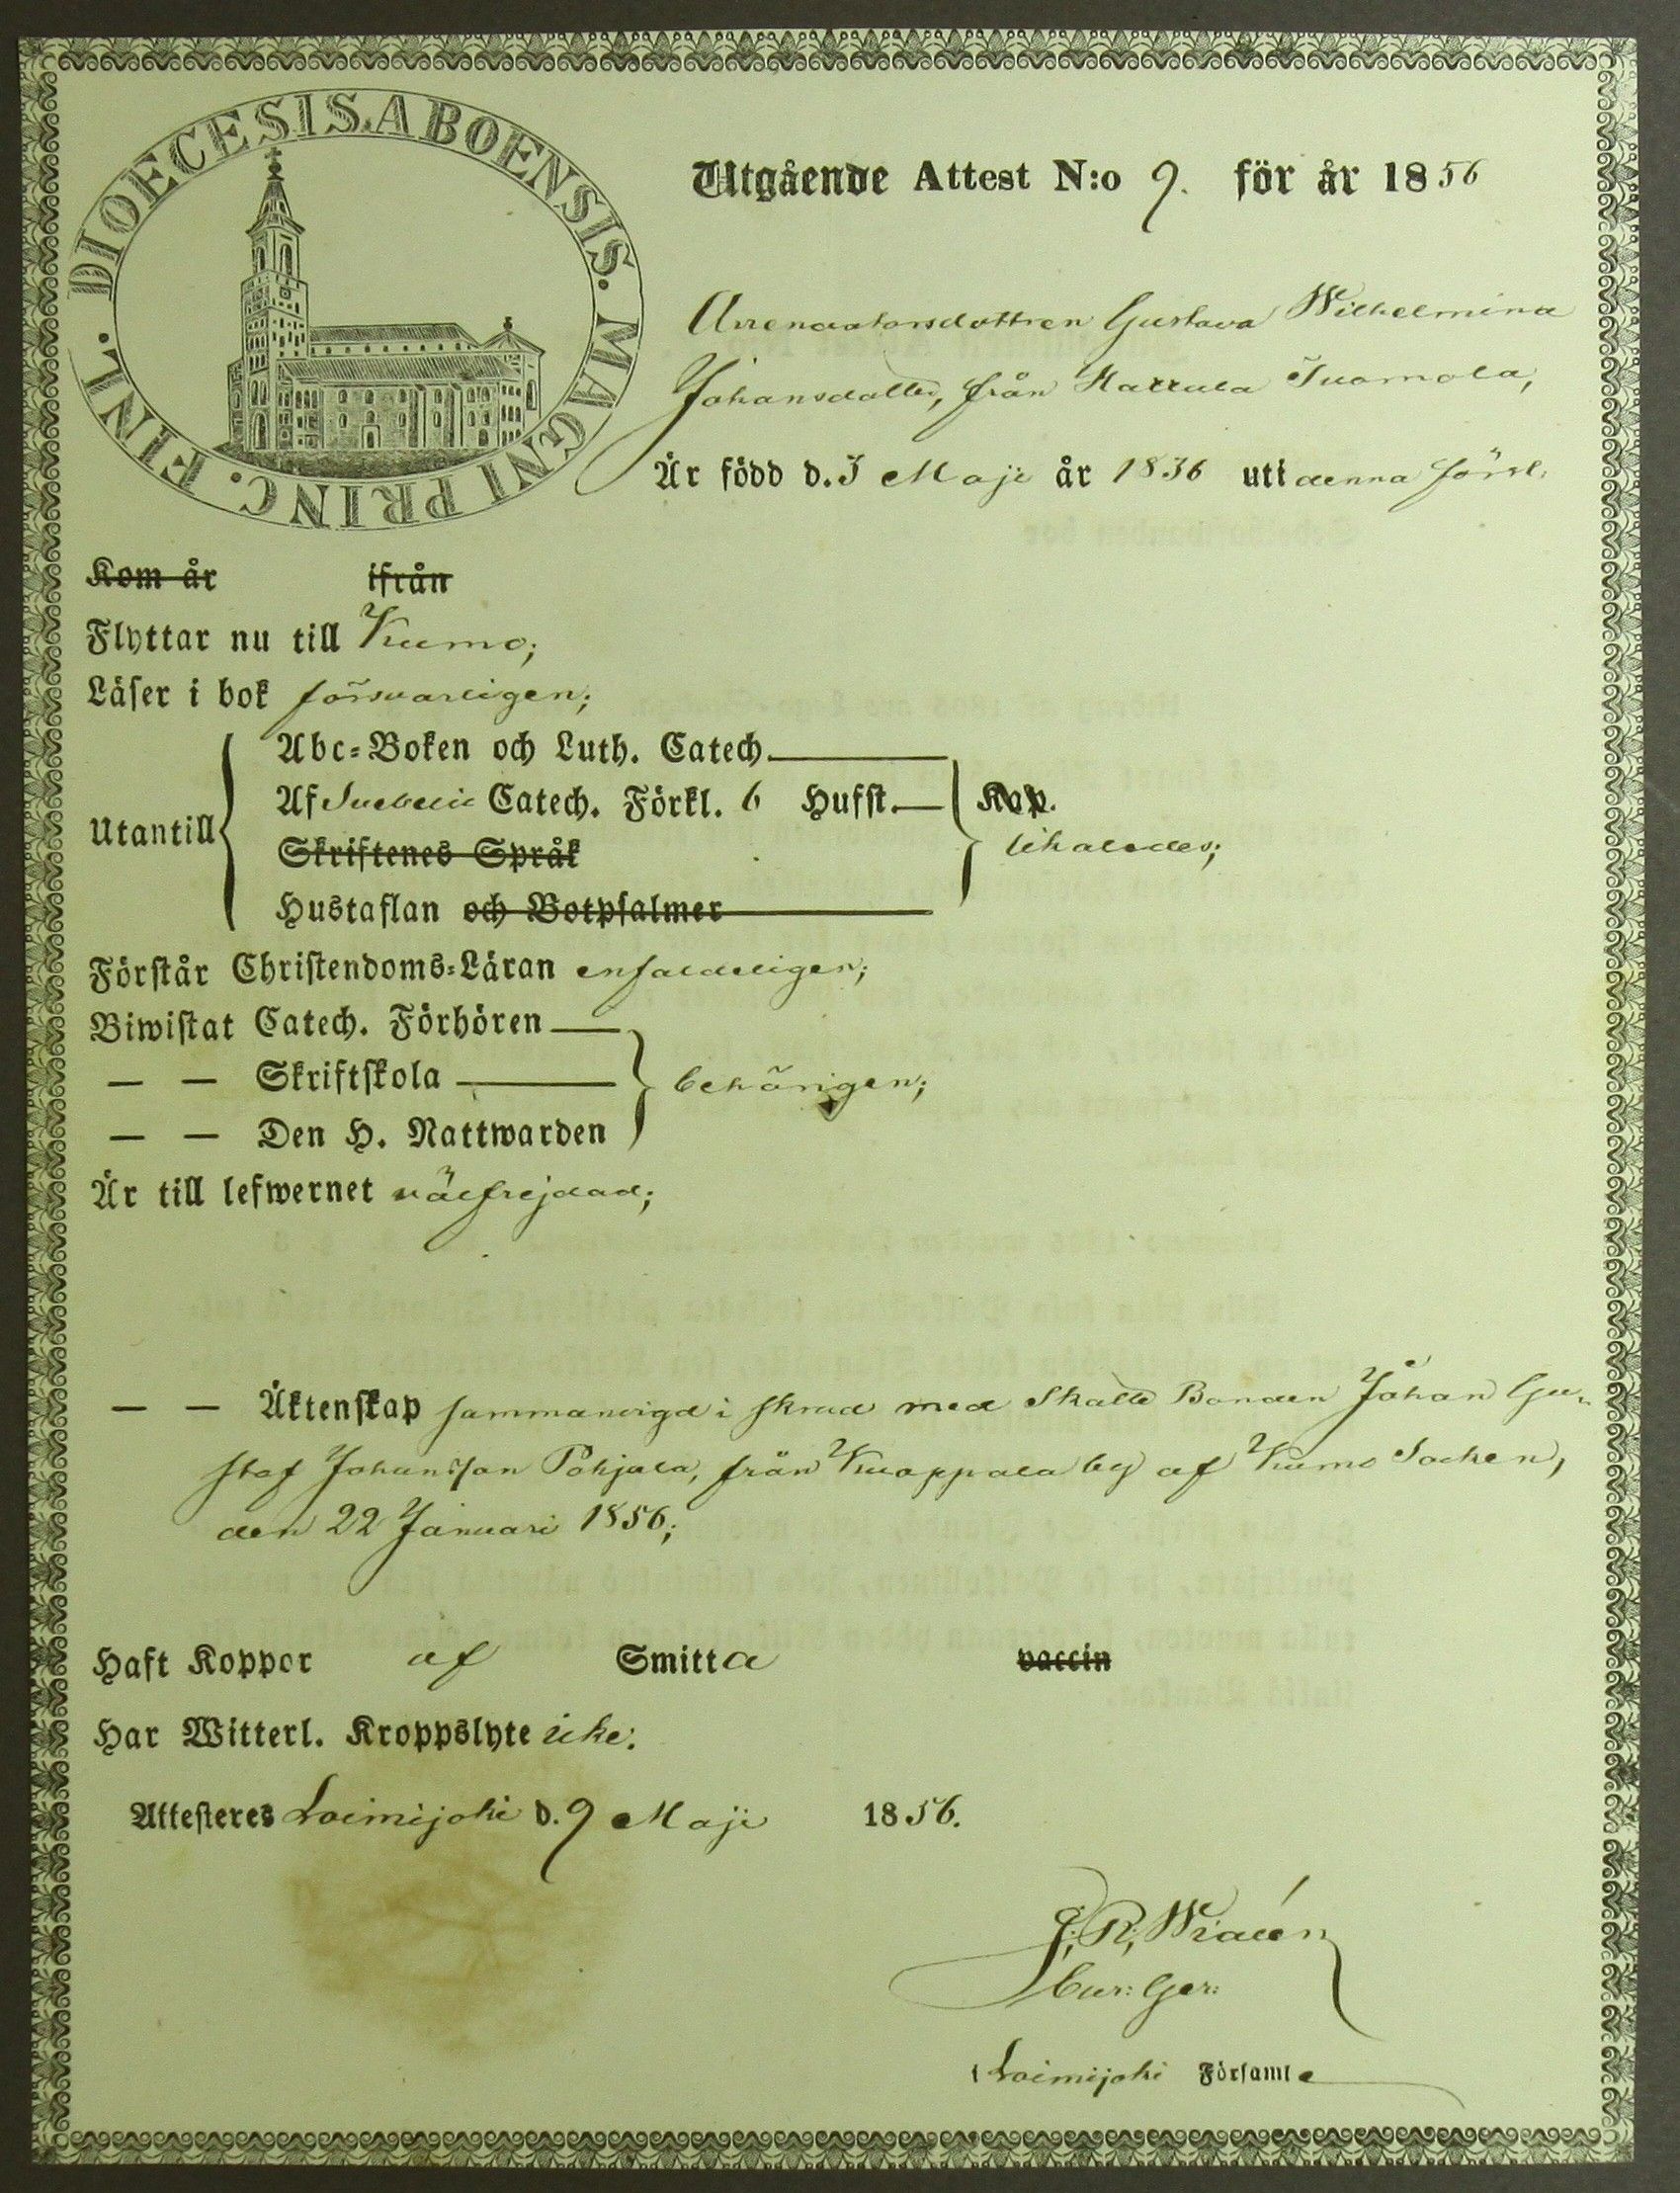 DIOECESIS ABOENSIS. MAGNI PRINC. FINL.
Utgående Attest N:o 9. för år 1856
Arrendatorsdottren Gustava Wilhelmina
Johansdotter, från Hattula Tuomola,
Är född d. 3 Maji år 1836 uti denna förs:
Kom år ifrån
Flyttar nu till Kumo;
Läser i bok försvarligen;
Abc-Boken och Luth. Catech.
Utantill
Af Svebelii Catech. Förkl. 6 Hufst. Kap.
likaledes;
Skriftenes Språk
Hustaflan och Botpsalmer
Förstår Christendoms-Läran enfaldeligen;
Biwistat Catech. Förhören
— — Skriftskola behörigen;
— — Den H. Nattwarden
Är till lefwernet välfrejdad;
— — Äktenskap sammanvigd i skrud med Skatte Bonden Johan Gu-
staf Johansson Pohjala, från Kuoppala by af Kumo Socken,
den 22 Januari 1856;
Haft Koppor af Smitta vaccin
Har Witterl. Kroppslyte icke.
Attesteres Loimijoki d. 9 Maji 1856.
J. R. Widén
Cur: Ger:
i Loimijoki Församl